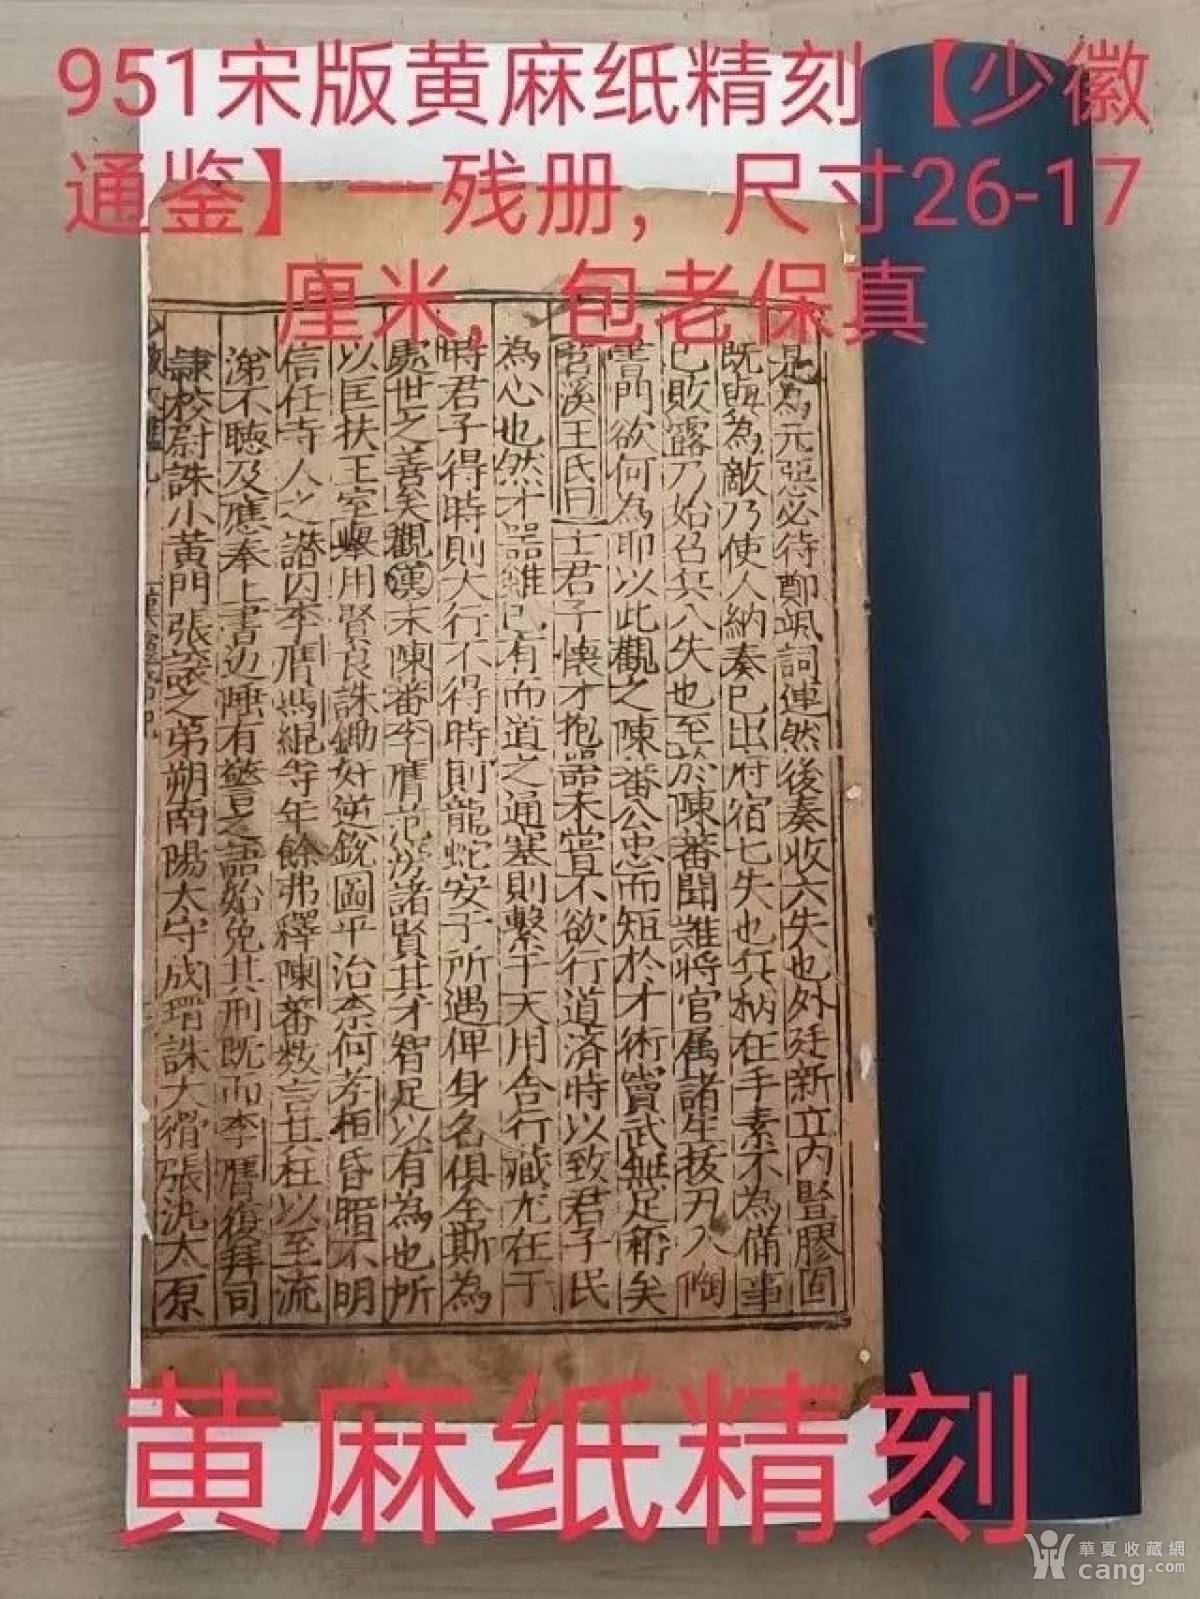 951宋版黄麻纸精刻【少徽
通鉴】一残册，尺寸26-17
厘米，包老保真
是為元惡必待鄭颯詞連然後奏收六失也外廷新立内豎膠固
既與為敵乃使人納奏已出府宿七失也兵柄在手素不為備事
已敗露乃始召兵八失也至於陳蕃聞難將官属諸生拔刃入
書門欲何為耶以此觀之陳蕃公忠而短於才術竇武無足術矣
苕溪王氏曰士君子懷才抱器未嘗不欲行道済時以致君子民
為心也然才器雖已有而道之通塞則繫于天用舎行藏尤在于
時君子得時則大行不得時則龍蛇安于所遇俾身名俱全斯為
處世之善矣觀漢末陳蕃李膺范滂諸賢其才智足以有為也所
以匡扶王室擧用賢良誅鋤奸逆銳圖平治柰何若桓昏暗不明
信任寺人之譖囚李膺馮緄等年餘弗釋陳蕃数言其枉以至流
涕不聴及應奉上書边陲有警言之語始免其刑既而李膺復拜司
隷校尉誅小黄門張讓之弟朔南陽太守成瑨誅大猾張汎太原
黄麻纸精刻
華夏收藏網
cang.com